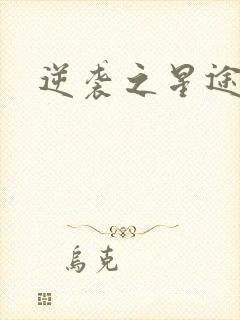 逆袭之星途
乌克